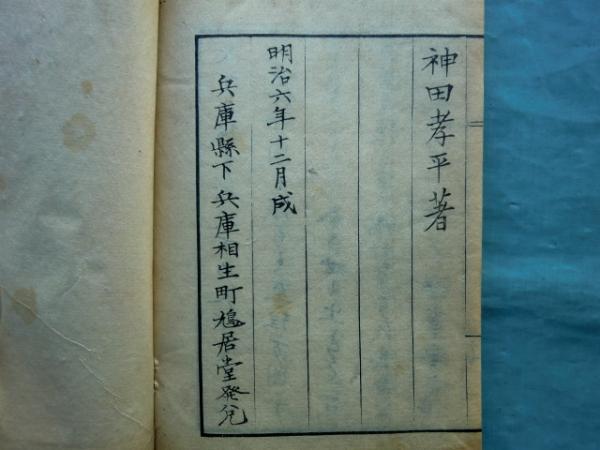 神田孝平著
明治六年十二月成
兵庫縣下兵庫相生町鳩居堂發兌